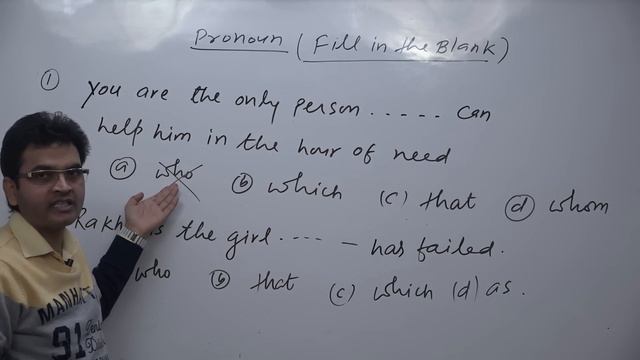 Pronoun (Fill in the Blank)
① You are the only person ..... can
help him in the hour of need
ⓐ who ⓑ which (c) that ⓓ whom
is the girl .... – has failed.
who ⓑ that (c) which (d) as.
MANHAT
91